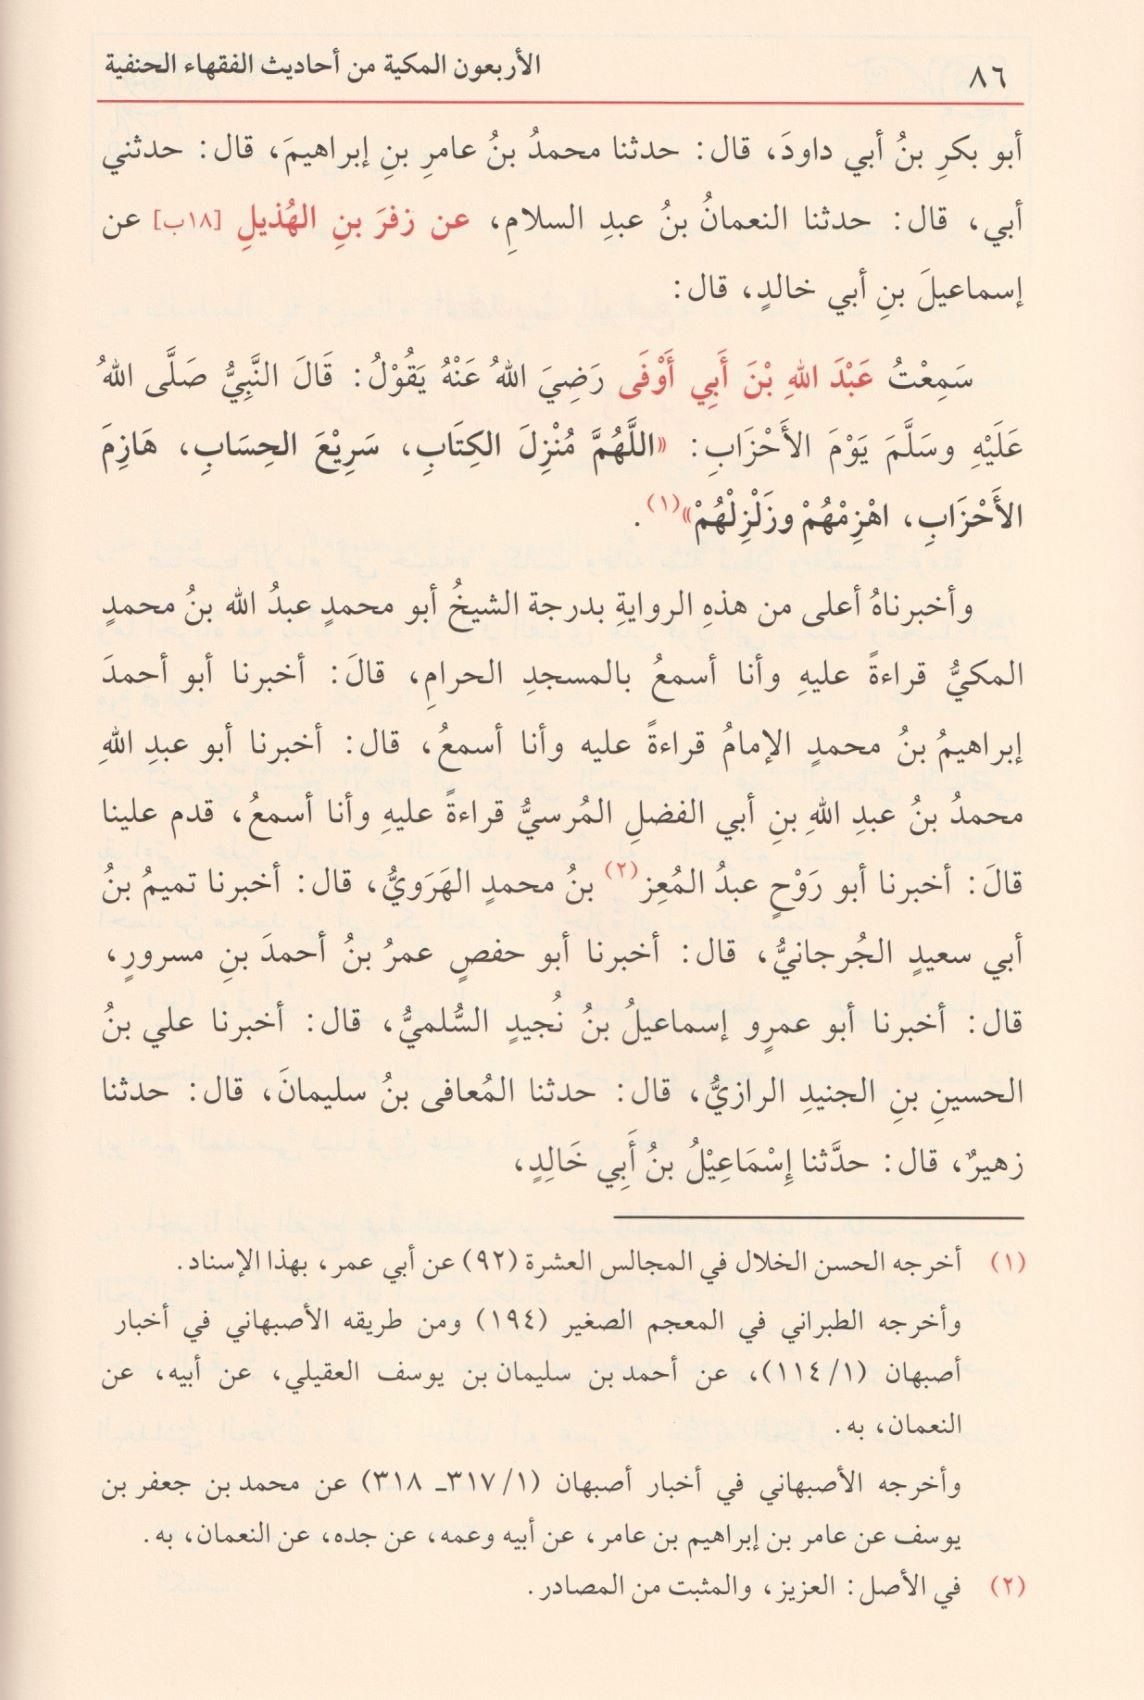 ٨٦
الأربعون المكية من أحاديث الفقهاء الحنفية
أبو بكرِ بنُ أبي داودَ، قال: حدثنا محمدُ بنُ عامرِ بنِ إبراهيمَ، قال: حدثني
أبي، قال: حدثنا النعمانُ بنُ عبدِ السلامِ، عن زفرَ بنِ الهُذيلِ [١٨ب] عن
إسماعيلَ بنِ أبي خالدٍ، قال:
سَمِعْتُ عَبْدَ اللهِ بْنَ أَبِي أَوْفَى رَضِيَ اللهُ عَنْهُ يَقُوْلُ: قَالَ النَّبِيُّ صَلَّى اللهُ
عَلَيْهِ وسَلَّمَ يَوْمَ الأَحْزَابِ: «اللَّهُمَّ مُنْزِلَ الكِتَابِ، سَرِيْعَ الحِسَابِ، هَازِمَ
الأَحْزَابِ، اهْزِمْهُمْ وزَلْزِلْهُمْ»(١).
وأخبرناهُ أعلى من هذهِ الروايةِ بدرجة الشيخُ أبو محمدٍ عبدُ الله بنُ محمدٍ
المكيُّ قراءةً عليهِ وأنا أسمعُ بالمسجدِ الحرامِ، قالَ: أخبرنا أبو أحمدَ
إبراهيمُ بنُ محمدٍ الإمامُ قراءةً عليه وأنا أسمعُ، قال: أخبرنا أبو عبدِ اللهِ
محمدُ بنُ عبدِ اللهِ بنِ أبي الفضلِ المُرسيُّ قراءةً عليهِ وأنا أسمعُ، قدم علينا
قالَ: أخبرنا أبو رَوْحٍ عبدُ المُعِز(٢) بنُ محمدٍ الهَرَويُّ، قال: أخبرنا تميمُ بنُ
أبي سعيدٍ الجُرجانيُّ، قال: أخبرنا أبو حفصٍ عمرُ بنُ أحمدَ بنِ مسرورٍ،
قال: أخبرنا أبو عمرٍو إسماعيلُ بنُ نُجيدٍ السُّلميُّ، قال: أخبرنا علي بنُ
الحسينِ بنِ الجنيدِ الرازيُّ، قال: حدثنا المُعافى بنُ سليمانَ، قال: حدثنا
زهيرٌ، قال: حدَّثنا إِسْمَاعِيْلُ بنُ أَبِي خَالِدٍ،
(١) أخرجه الحسن الخلال في المجالس العشرة (٩٢) عن أبي عمر، بهذا الإسناد.
وأخرجه الطبراني في المعجم الصغير (١٩٤) ومن طريقه الأصبهاني في أخبار
أصبهان (١/ ١١٤)، عن أحمد بن سليمان بن يوسف العقيلي، عن أبيه، عن
النعمان، به.
وأخرجه الأصبهاني في أخبار أصبهان (١/ ٣١٧ـ ٣١٨) عن محمد بن جعفر بن
يوسف عن عامر بن إبراهيم بن عامر، عن أبيه وعمه، عن جده، عن النعمان، به.
(٢) في الأصل: العزيز، والمثبت من المصادر.